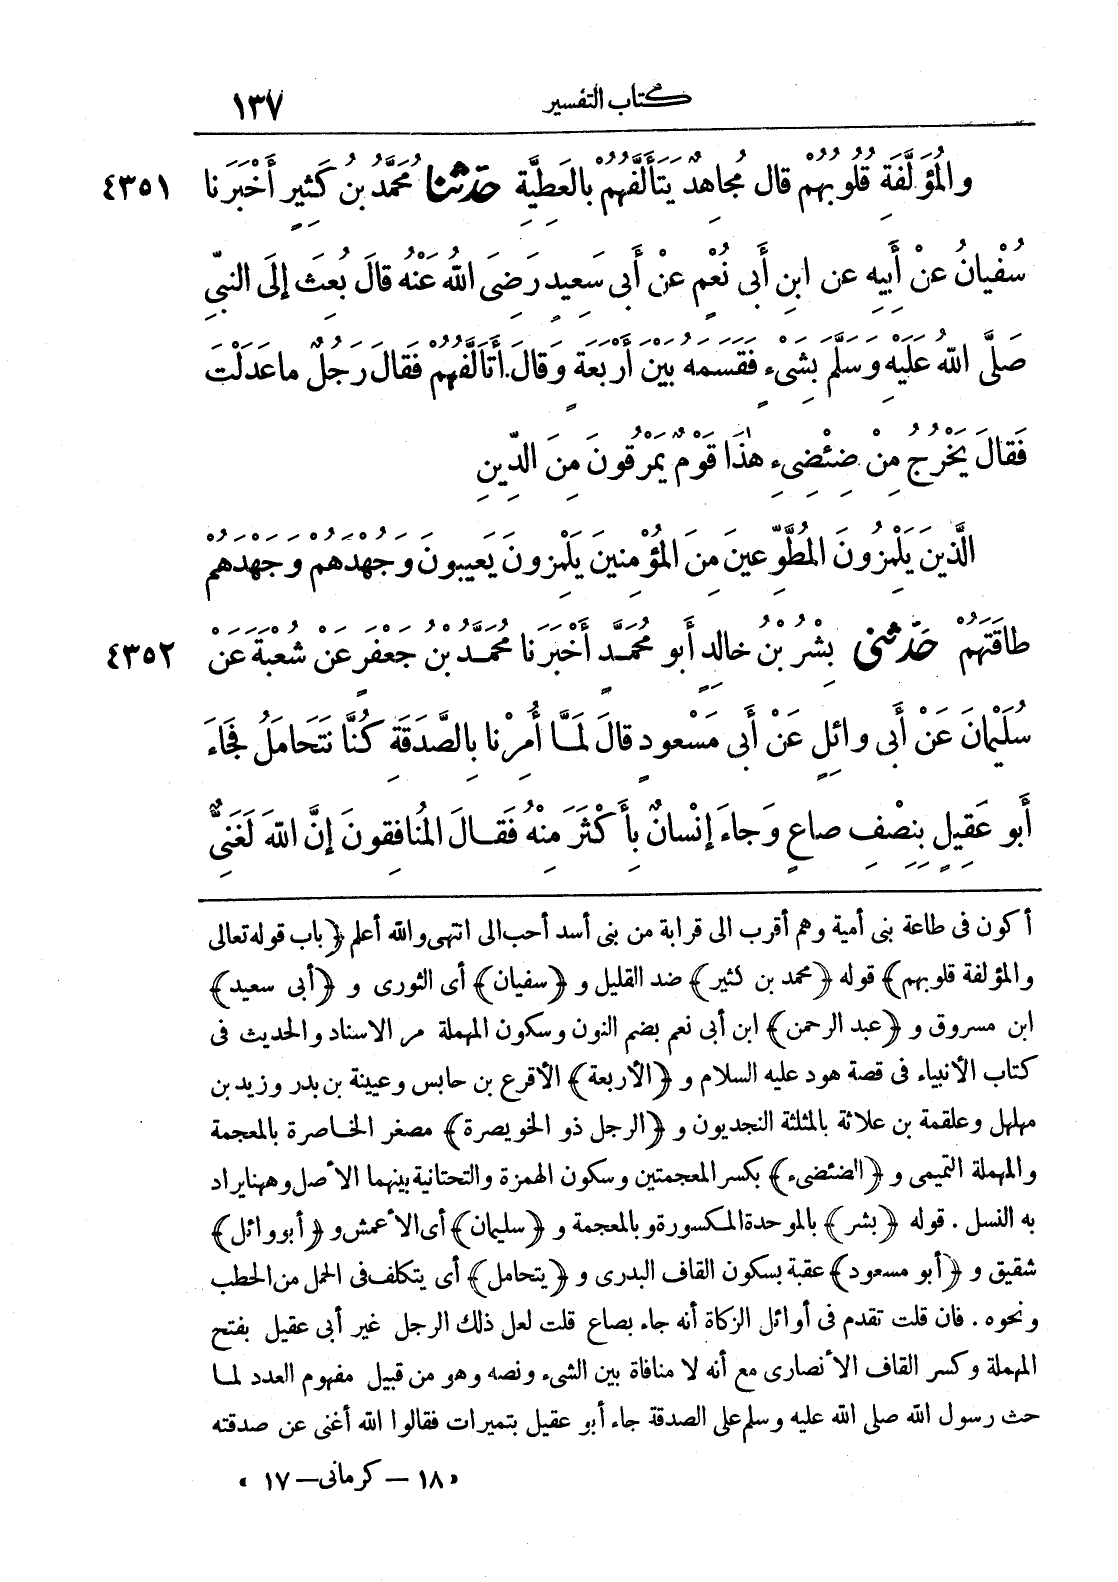 كتاب التفسير ١٣٧
والْمُؤَلَّفَةِ قُلُوبُهُمْ قال مُجاهِدٌ يَتَأَلَّفُهُمْ بالعَطِيَّةِ حَدّثنا مُحَمَّدُ بن كَثِيرٍ أَخْبَرَنا ٤٣٥١
سُفْيانُ عَنْ أَبِيهِ عن ابنِ أَبى نُعْمٍ عَنْ أَبى سَعِيدٍ رَضِىَ اللهُ عَنْهُ قالَ بُعِثَ إِلَى النبِّى
صَلَّى اللهُ عَلَيْهِ وَسَلَّم بِشَىْءٍ فَقَسَمَهُ بَيْنَ أَرْبَعَةٍ وَقالَ أَتَأَلَّفُهُمْ فَقَالَ رَجُلٌ ماعَدَلْتَ
فَقالَ يَخْرُجُ مِنْ ضِئْضِىءِ هٰذَا قَوْمٌ يَمْرُقُونَ مِنَ الدّينِ
الَّذينَ يَلْمِزُونَ الْمُطَّوِّعينَ مِنَ الْمُؤْمِنينَ يَلْمِزُونَ يَعيبونَ وجُهْدَهُمْ وجَهْدَهُمْ
طاقَتَهُمْ حَدّثنى بِشْرُ بْنُ خالِدٍ أَبو مُحَمَّدٍ أَخْبَرَنا مُحَمَّدُ بن جَعْفَرٍ عَنْ شُعْبَةَ عَنْ ٤٣٥٢
سُلَيْمانَ عَنْ أَبى وائِلٍ عَنْ أَبى مَسْعودٍ قالَ لَمَّا أُمِرْنا بِالصَّدَقَةِ كُنَّا نَتَحامَلُ فَجَاءَ
أَبو عَقِيلٍ بِنِصْفِ صاعٍ وَجاءَ إِنْسانٌ بِأَكْثَرَ مِنْهُ فَقَالَ الْمُنافِقونَ إِنَّ اللهَ لَغَنِىٌّ
أكون فى طاعة بنى أمية وهم أقرب الى قرابة من بنى أسد أحب الى انتهى والله أعلم ﴿باب قوله تعالى
والمؤلفة قلوبهم﴾ قوله ﴿محمد بن كثير﴾ ضد القليل و ﴿سفيان﴾ أى الثورى و ﴿أبى سعيد﴾
ابن مسروق و ﴿عبد الرحمن﴾ ابن أبى نعم بضم النون وسكون المهملة مر الاسناد والحديث فى
كتاب الأنبياء فى قصة هود عليه السلام و ﴿الأربعة﴾ الأقرع بن حابس وعيينة بن بدر وزيد بن
مهلهل وعلقمة بن علاثة بالمثلثة النجديون و ﴿الرجل ذو الخويصرة﴾ مصغر الخاصرة بالمعجمة
والمهملة التميمى و ﴿الضئضىء﴾ بكسر المعجمتين وسكون الهمزة والتحتانية بينهما الأصل وههنا يراد
به النسل . قوله ﴿بشر﴾ بالموحدة المكسورة وبالمعجمة و ﴿سليمان﴾ أى الأعمش و ﴿أبو وائل﴾
شقيق و ﴿أبو مسعود﴾ عقبة بسكون القاف البدرى و ﴿يتحامل﴾ أى يتكلف فى الحمل من الحطب
ونحوه . فان قلت تقدم فى أوائل الزكاة أنه جاء بصاع قلت لعل ذلك الرجل غير أبى عقيل بفتح
المهملة وكسر القاف الأنصارى مع أنه لا منافاة بين الشىء ونصه وهو من قبيل مفهوم العدد لما
حث رسول الله صلى الله عليه وسلم على الصدقة جاء أبو عقيل بتميرات فقالوا الله أغنى عن صدقته
« ١٨ – كرمانى – ١٧ »